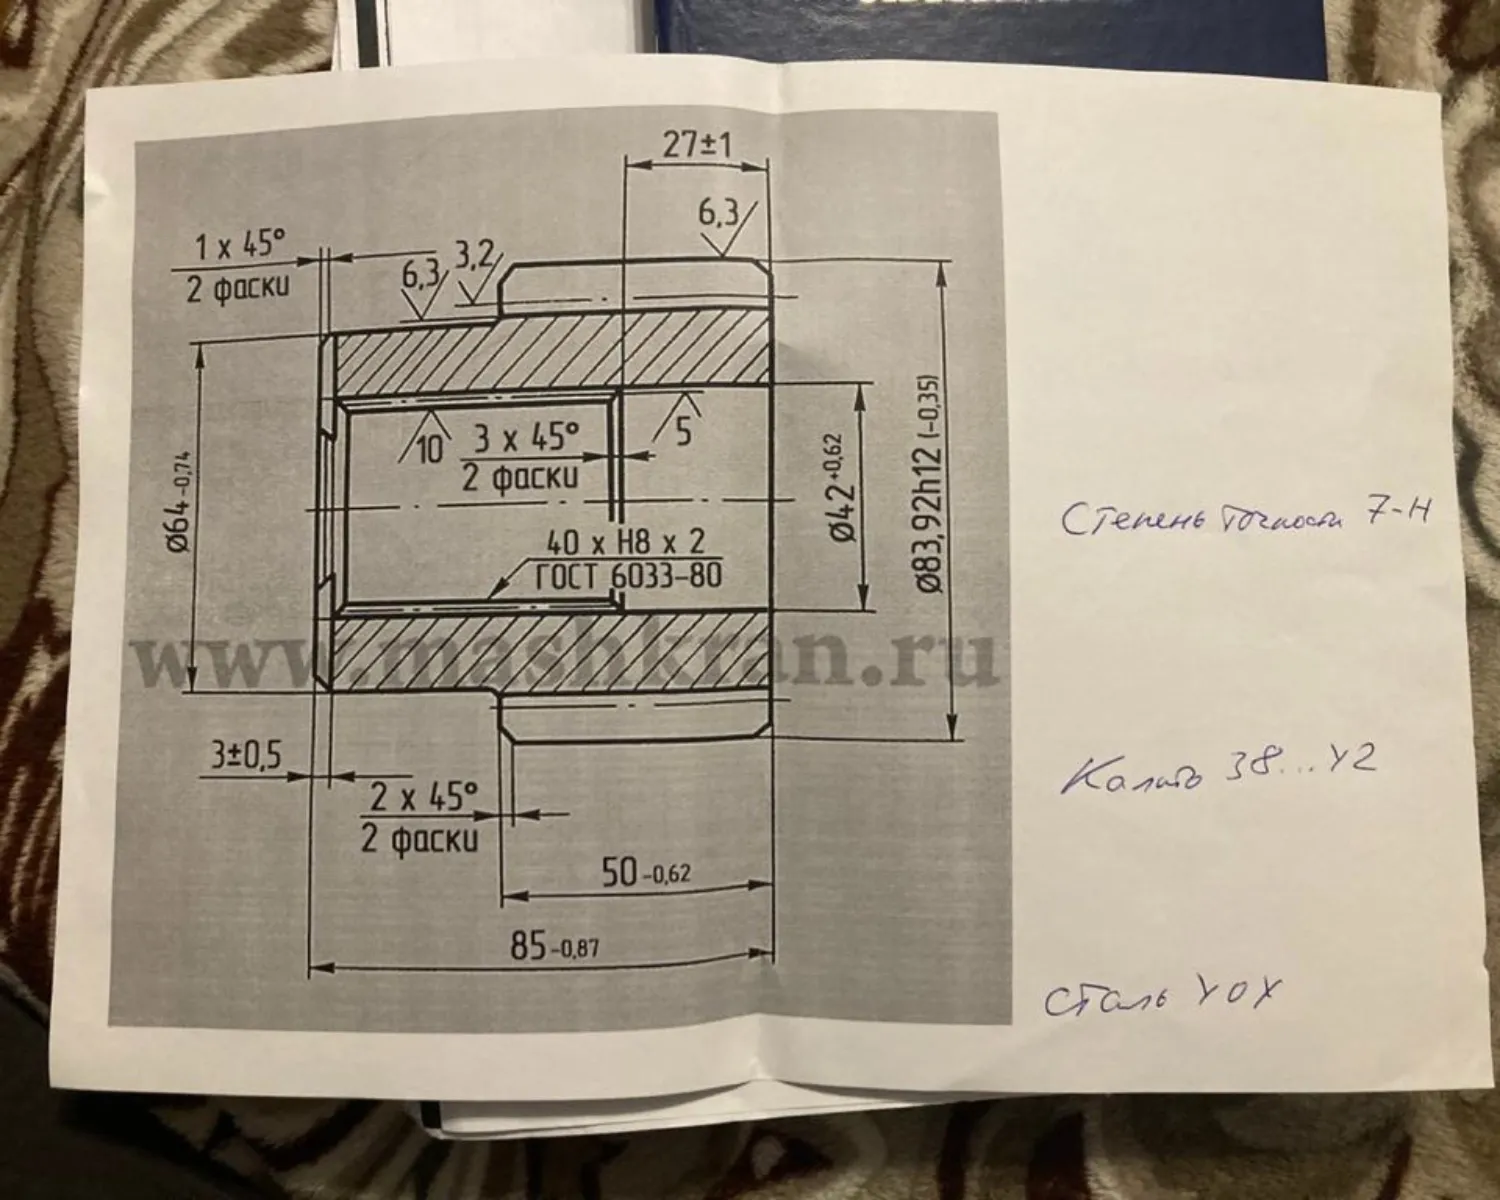 27±1
6,3
1 x 45°
2 фаски
6,3
3,2
10
3 x 45°
2 фаски
5
Ø64-0,74
Ø42+0,62
Ø83,92h12 (-0,35)
40 x H8 x 2
ГОСТ 6033-80
www.mashkran.ru
3±0,5
2 x 45°
2 фаски
50-0,62
85-0,87
Степень точности 7-Н
Калить 38...42
Сталь 40Х